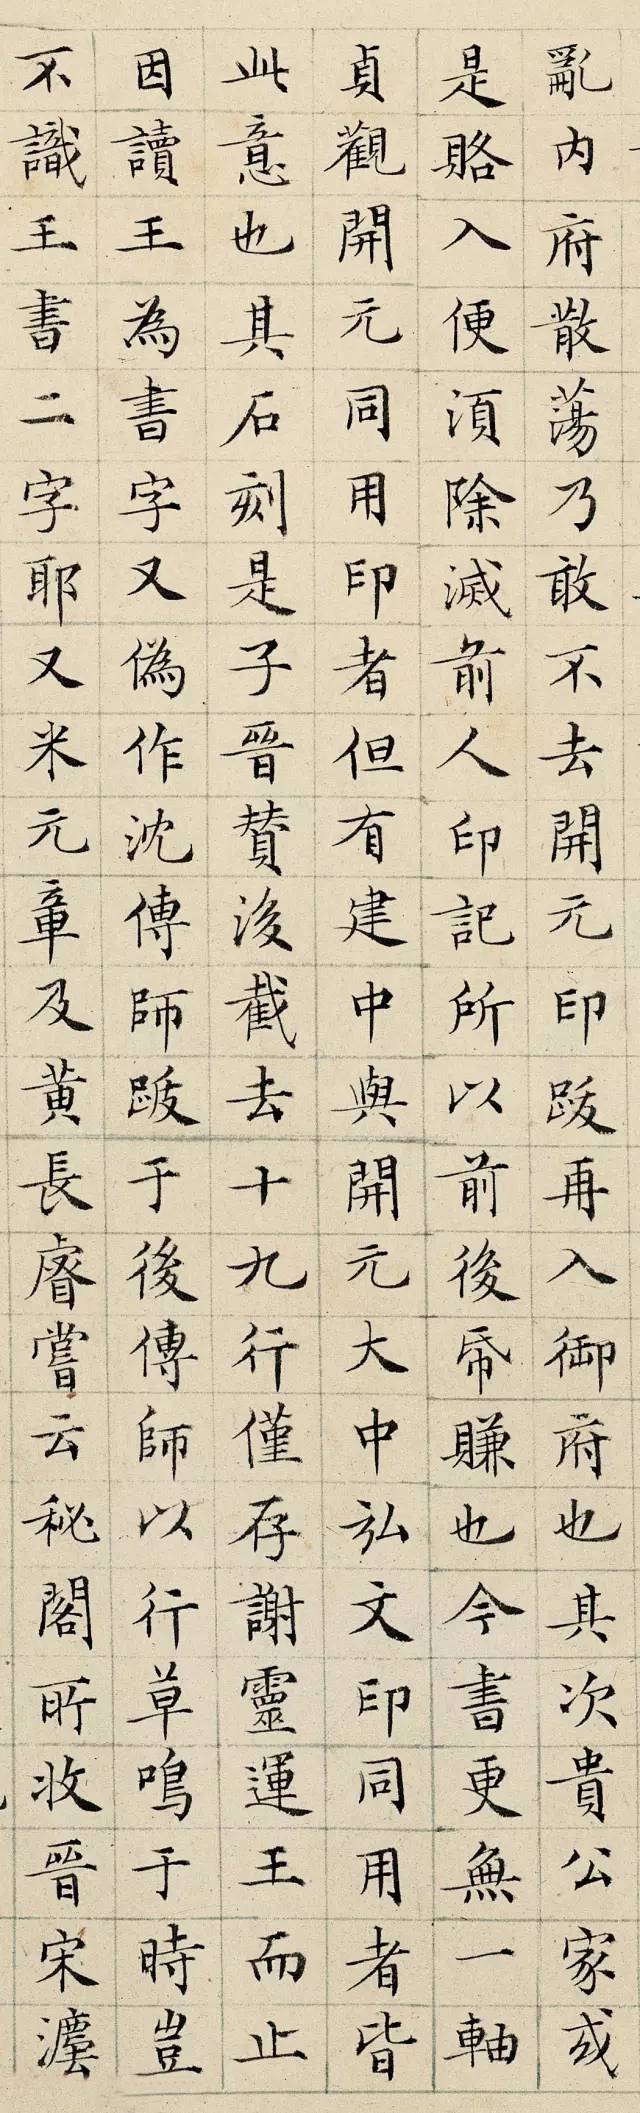 亂内府散蕩乃敢不去開元印跋再入御府也其次貴公家或
是賂入便須除滅前人印記所以前後帋賺也今書更無一軸
貞觀開元同用印者但有建中與開元大中弘文印同用者皆
此意也其石刻是子晉贊後截去十九行僅存謝靈運王而止
因讀王為書字又偽作沈傳師跋于後傳師以行草鳴于時豈
不識王書二字耶又米元章及黄長睿嘗云秘閣所收晉宋灋